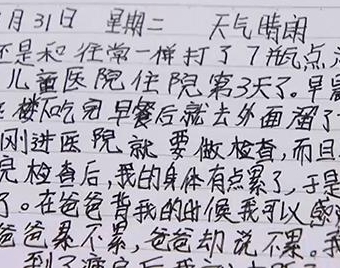 月31日 星期二 天气晴朗
还是和往常一样打了7瓶点
儿童医院住院第3天了。早
楼下吃完早餐后就去外面溜了
刚进医院就要做检查,而且
完检查后,我的身体有点累了,于是
了。在爸爸背我的时候我可以感
爸爸累不累,爸爸却说不累。我
到了